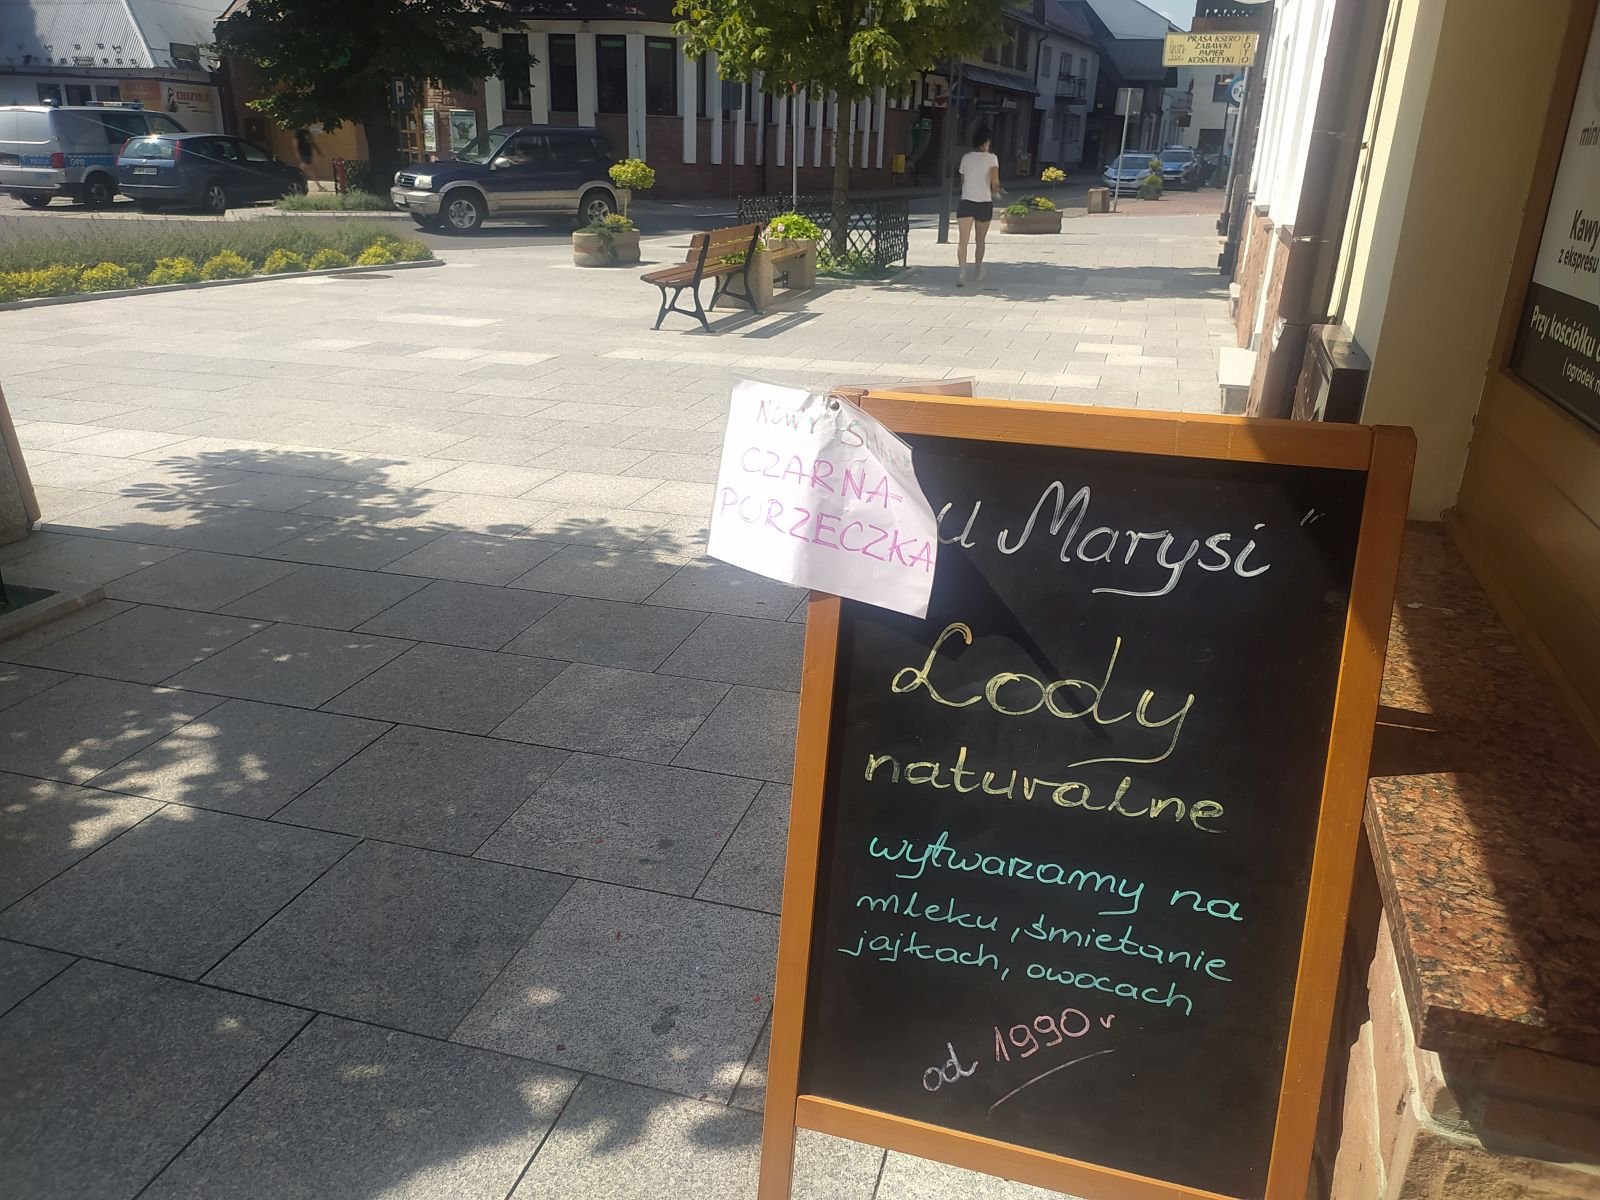 PRASA KSERO
ZABAWKI
PAPIER
KOSMETYKI
FOTO
ODZIEŻ
POLICJA
G919
P
NOWY
CZARNA
PORZECZKA
U Marysi"
Lody
naturalne
wytwarzamy na
mleku, śmietanie
jajkach, owocach
od 1990 r
Kawy
z ekspresu
Przy kościółku